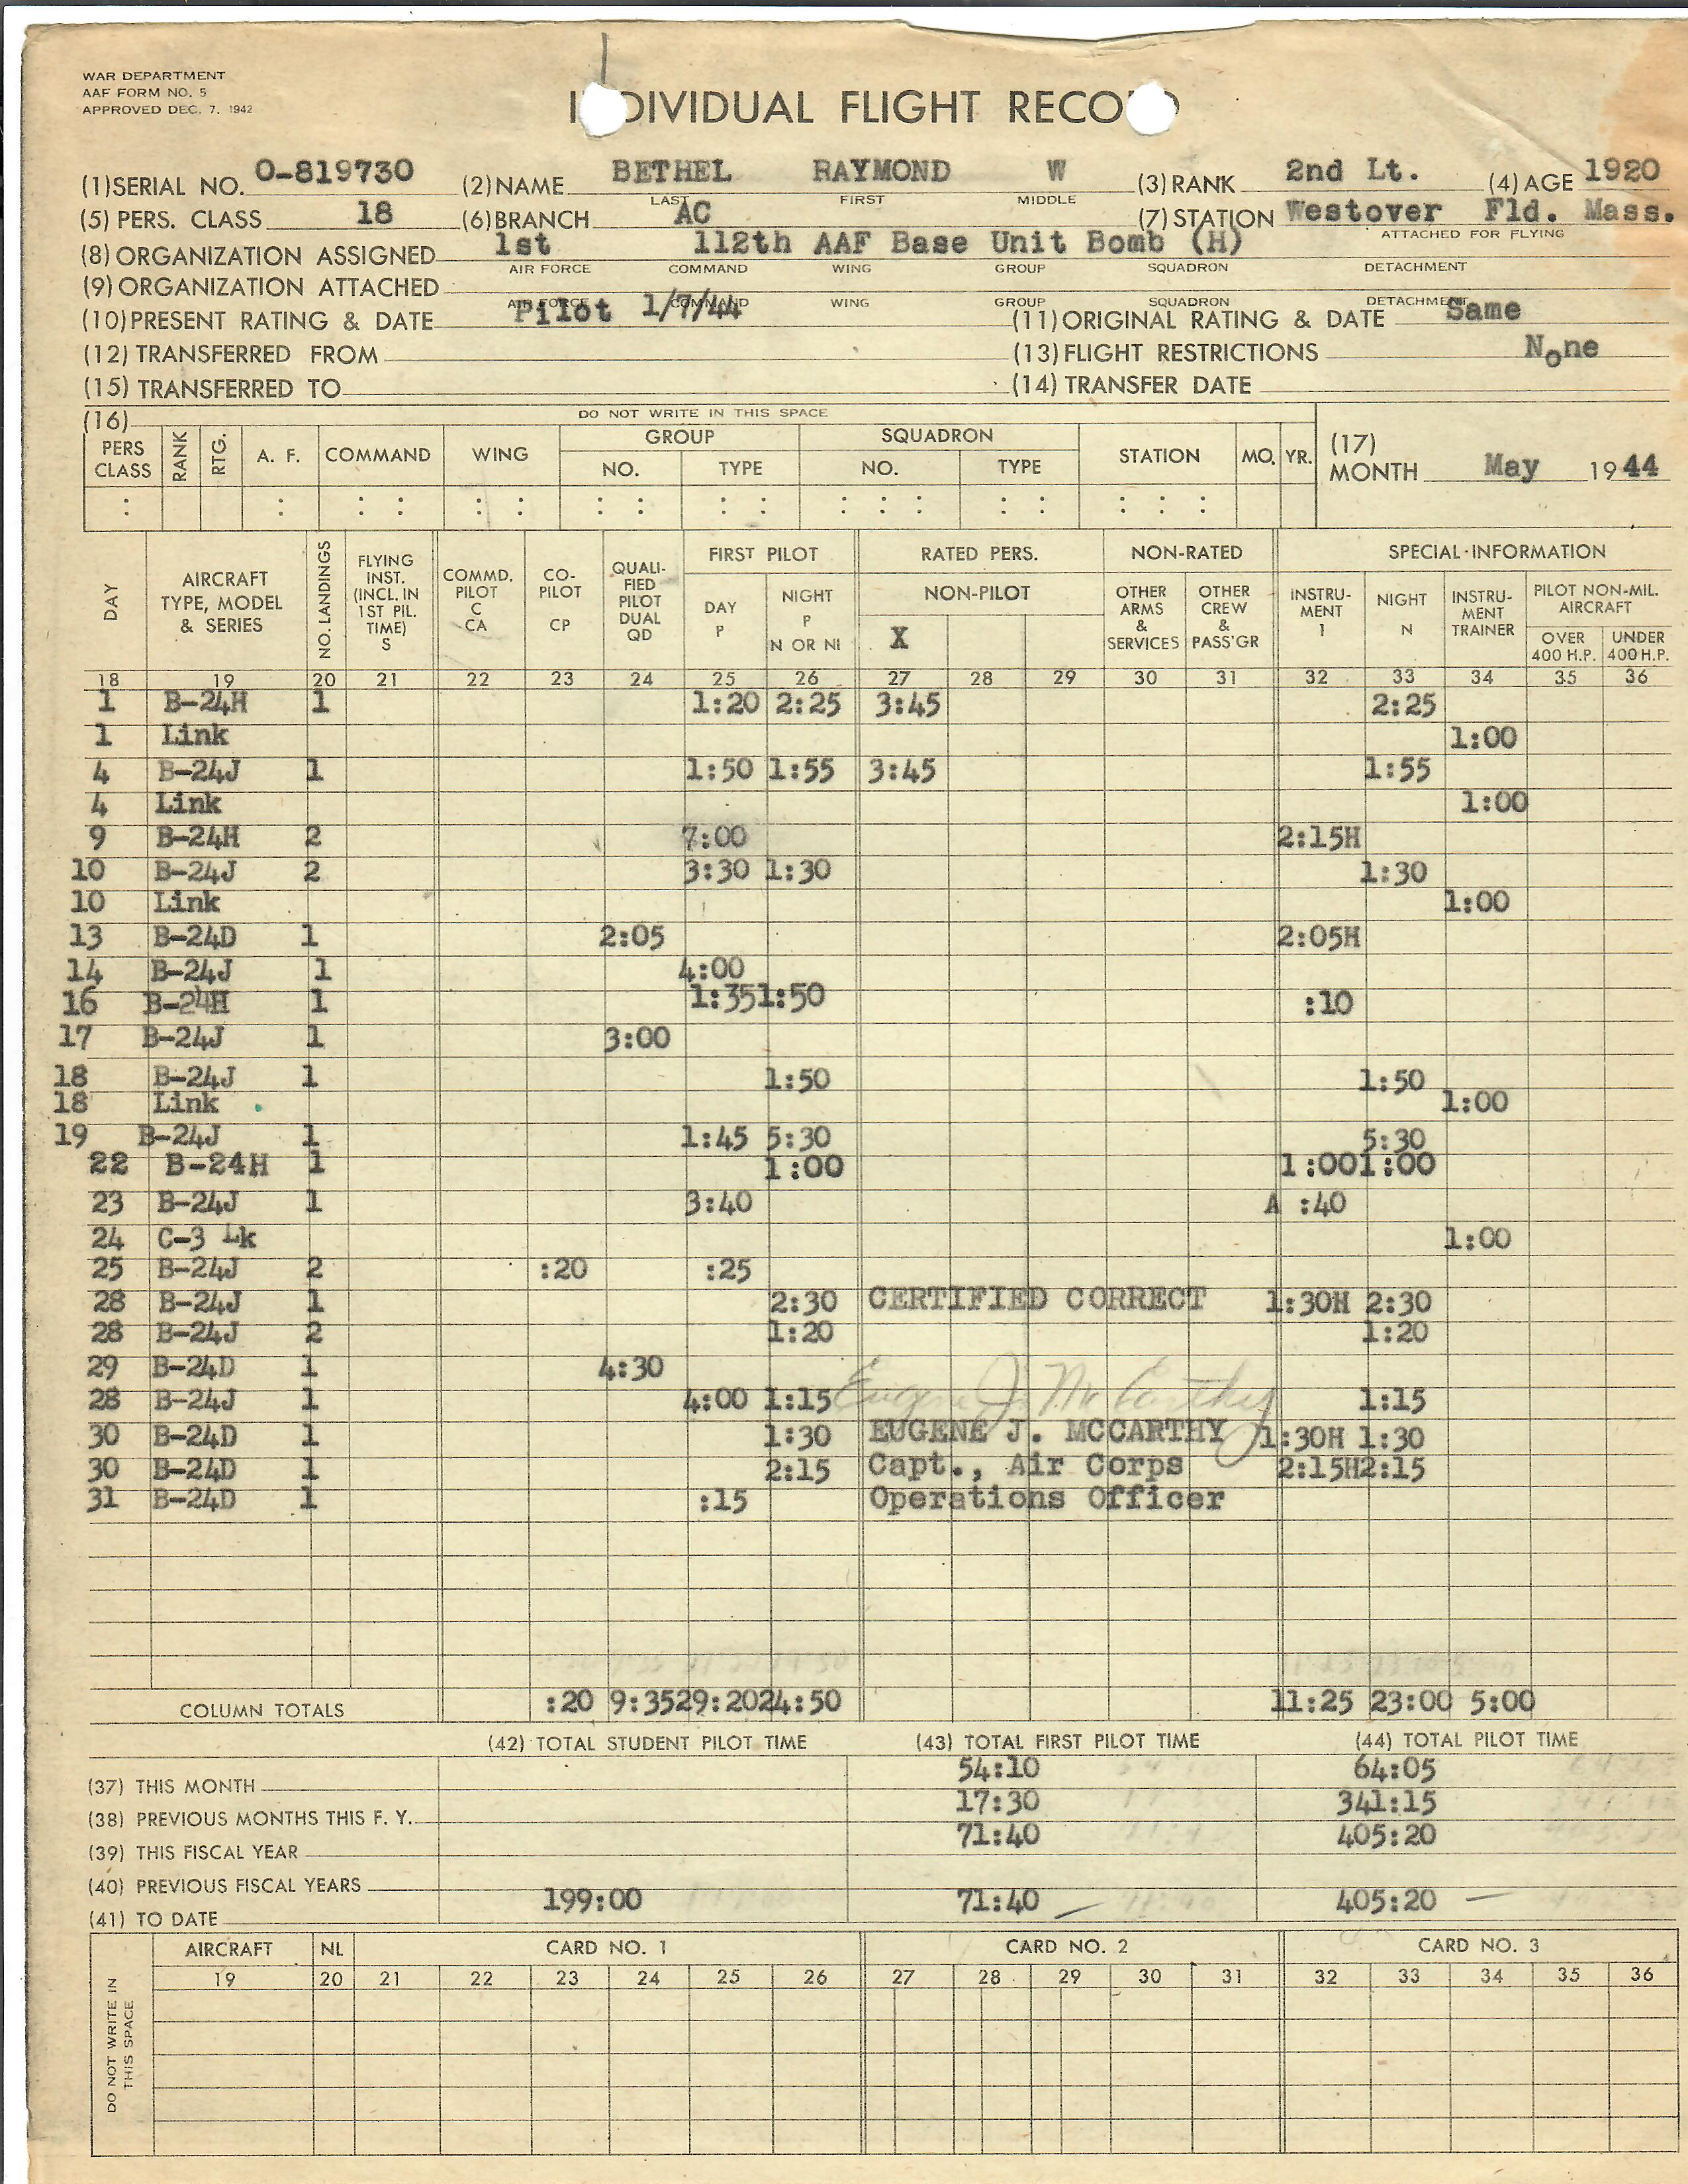 WAR DEPARTMENT
AAF FORM NO. 5
APPROVED DEC. 7, 1942
INDIVIDUAL FLIGHT RECORD
(1) SERIAL NO. 0-819730 (2) NAME BETHEL RAYMOND W (3) RANK 2nd Lt. (4) AGE 1920
LAST FIRST MIDDLE
(5) PERS. CLASS 18 (6) BRANCH AC (7) STATION Westover Fld. Mass.
ATTACHED FOR FLYING
(8) ORGANIZATION ASSIGNED 1st 112th AAF Base Unit Bomb (H)
AIR FORCE COMMAND WING GROUP SQUADRON DETACHMENT
(9) ORGANIZATION ATTACHED
AIR FORCE COMMAND WING GROUP SQUADRON DETACHMENT
(10) PRESENT RATING & DATE Pilot 1/7/44 (11) ORIGINAL RATING & DATE Same
(12) TRANSFERRED FROM (13) FLIGHT RESTRICTIONS None
(15) TRANSFERRED TO (14) TRANSFER DATE
(16) DO NOT WRITE IN THIS SPACE
PERS CLASS RANK RTG. A. F. COMMAND WING GROUP NO. TYPE SQUADRON NO. TYPE STATION MO. YR. (17) MONTH May 1944
: : : : : : : : : : : : : : : : : :
DAY AIRCRAFT TYPE, MODEL & SERIES NO. LANDINGS FLYING INST. (INCL. IN 1ST PIL. TIME) S COMMD. PILOT C CA CO-PILOT CP QUALI-FIED PILOT DUAL QD FIRST PILOT DAY P NIGHT P N OR NI RATED PERS. NON-PILOT X NON-RATED OTHER ARMS & SERVICES OTHER CREW & PASS'GR SPECIAL INFORMATION INSTRU-MENT I NIGHT N INSTRU-MENT TRAINER PILOT NON-MIL. AIRCRAFT OVER 400 H.P. UNDER 400 H.P.
18 19 20 21 22 23 24 25 26 27 28 29 30 31 32 33 34 35 36
1 B-24H 1 1:20 2:25 3:45 2:25
1 Link 1:00
4 B-24J 1 1:50 1:55 3:45 1:55
4 Link 1:00
9 B-24H 2 7:00 2:15H
10 B-24J 2 3:30 1:30 1:30
10 Link 1:00
13 B-24D 1 2:05 2:05H
14 B-24J 1 4:00
16 B-24H 1 1:35 1:50 :10
17 B-24J 1 3:00
18 B-24J 1 1:50 1:50
18 Link 1:00
19 B-24J 1 1:45 5:30 5:30
22 B-24H 1 1:00 1:00 1:00
23 B-24J 1 3:40 A :40
24 C-3 Lk 1:00
25 B-24J 2 :20 :25
28 B-24J 1 2:30 CERTIFIED CORRECT 1:30H 2:30
28 B-24J 2 1:20 1:20
29 B-24D 1 4:30
28 B-24J 1 4:00 1:15 Eugene J. McCarthy 1:15
30 B-24D 1 1:30 EUGENE J. MCCARTHY 1:30H 1:30
30 B-24D 1 2:15 Capt., Air Corps 2:15H 2:15
31 B-24D 1 :15 Operations Officer
COLUMN TOTALS :20 9:35 29:20 24:50 11:25 23:00 5:00
(42) TOTAL STUDENT PILOT TIME (43) TOTAL FIRST PILOT TIME (44) TOTAL PILOT TIME
(37) THIS MONTH 54:10 64:05
(38) PREVIOUS MONTHS THIS F. Y. 17:30 341:15
(39) THIS FISCAL YEAR 71:40 405:20
(40) PREVIOUS FISCAL YEARS
(41) TO DATE 199:00 71:40 405:20
DO NOT WRITE IN THIS SPACE
AIRCRAFT NL CARD NO. 1 CARD NO. 2 CARD NO. 3
19 20 21 22 23 24 25 26 27 28 29 30 31 32 33 34 35 36